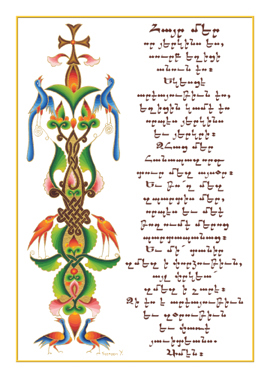 Հայր մեր
որ յերկինս ես,
սուրբ եղիցի
անուն քո։
Եկեսցէ
արքայութիւն քո,
եղիցին կամք քո
որպէս յերկինս
եւ յերկրի։
Զհաց մեր
հանապազորդ
տուր մեզ այսօր։
Եւ թո՛ղ մեզ
զպարտիս մեր,
որպէս եւ մեք
թողումք մերոց
պարտապանաց։
Եւ մի՛ տանիր
զմեզ ի փորձութիւն,
այլ փրկեա
զմեզ ի չարէ։
Զի քո է արքայութիւն
եւ զօրութիւն
եւ փառք
յաւիտեանս.
Ամէն։